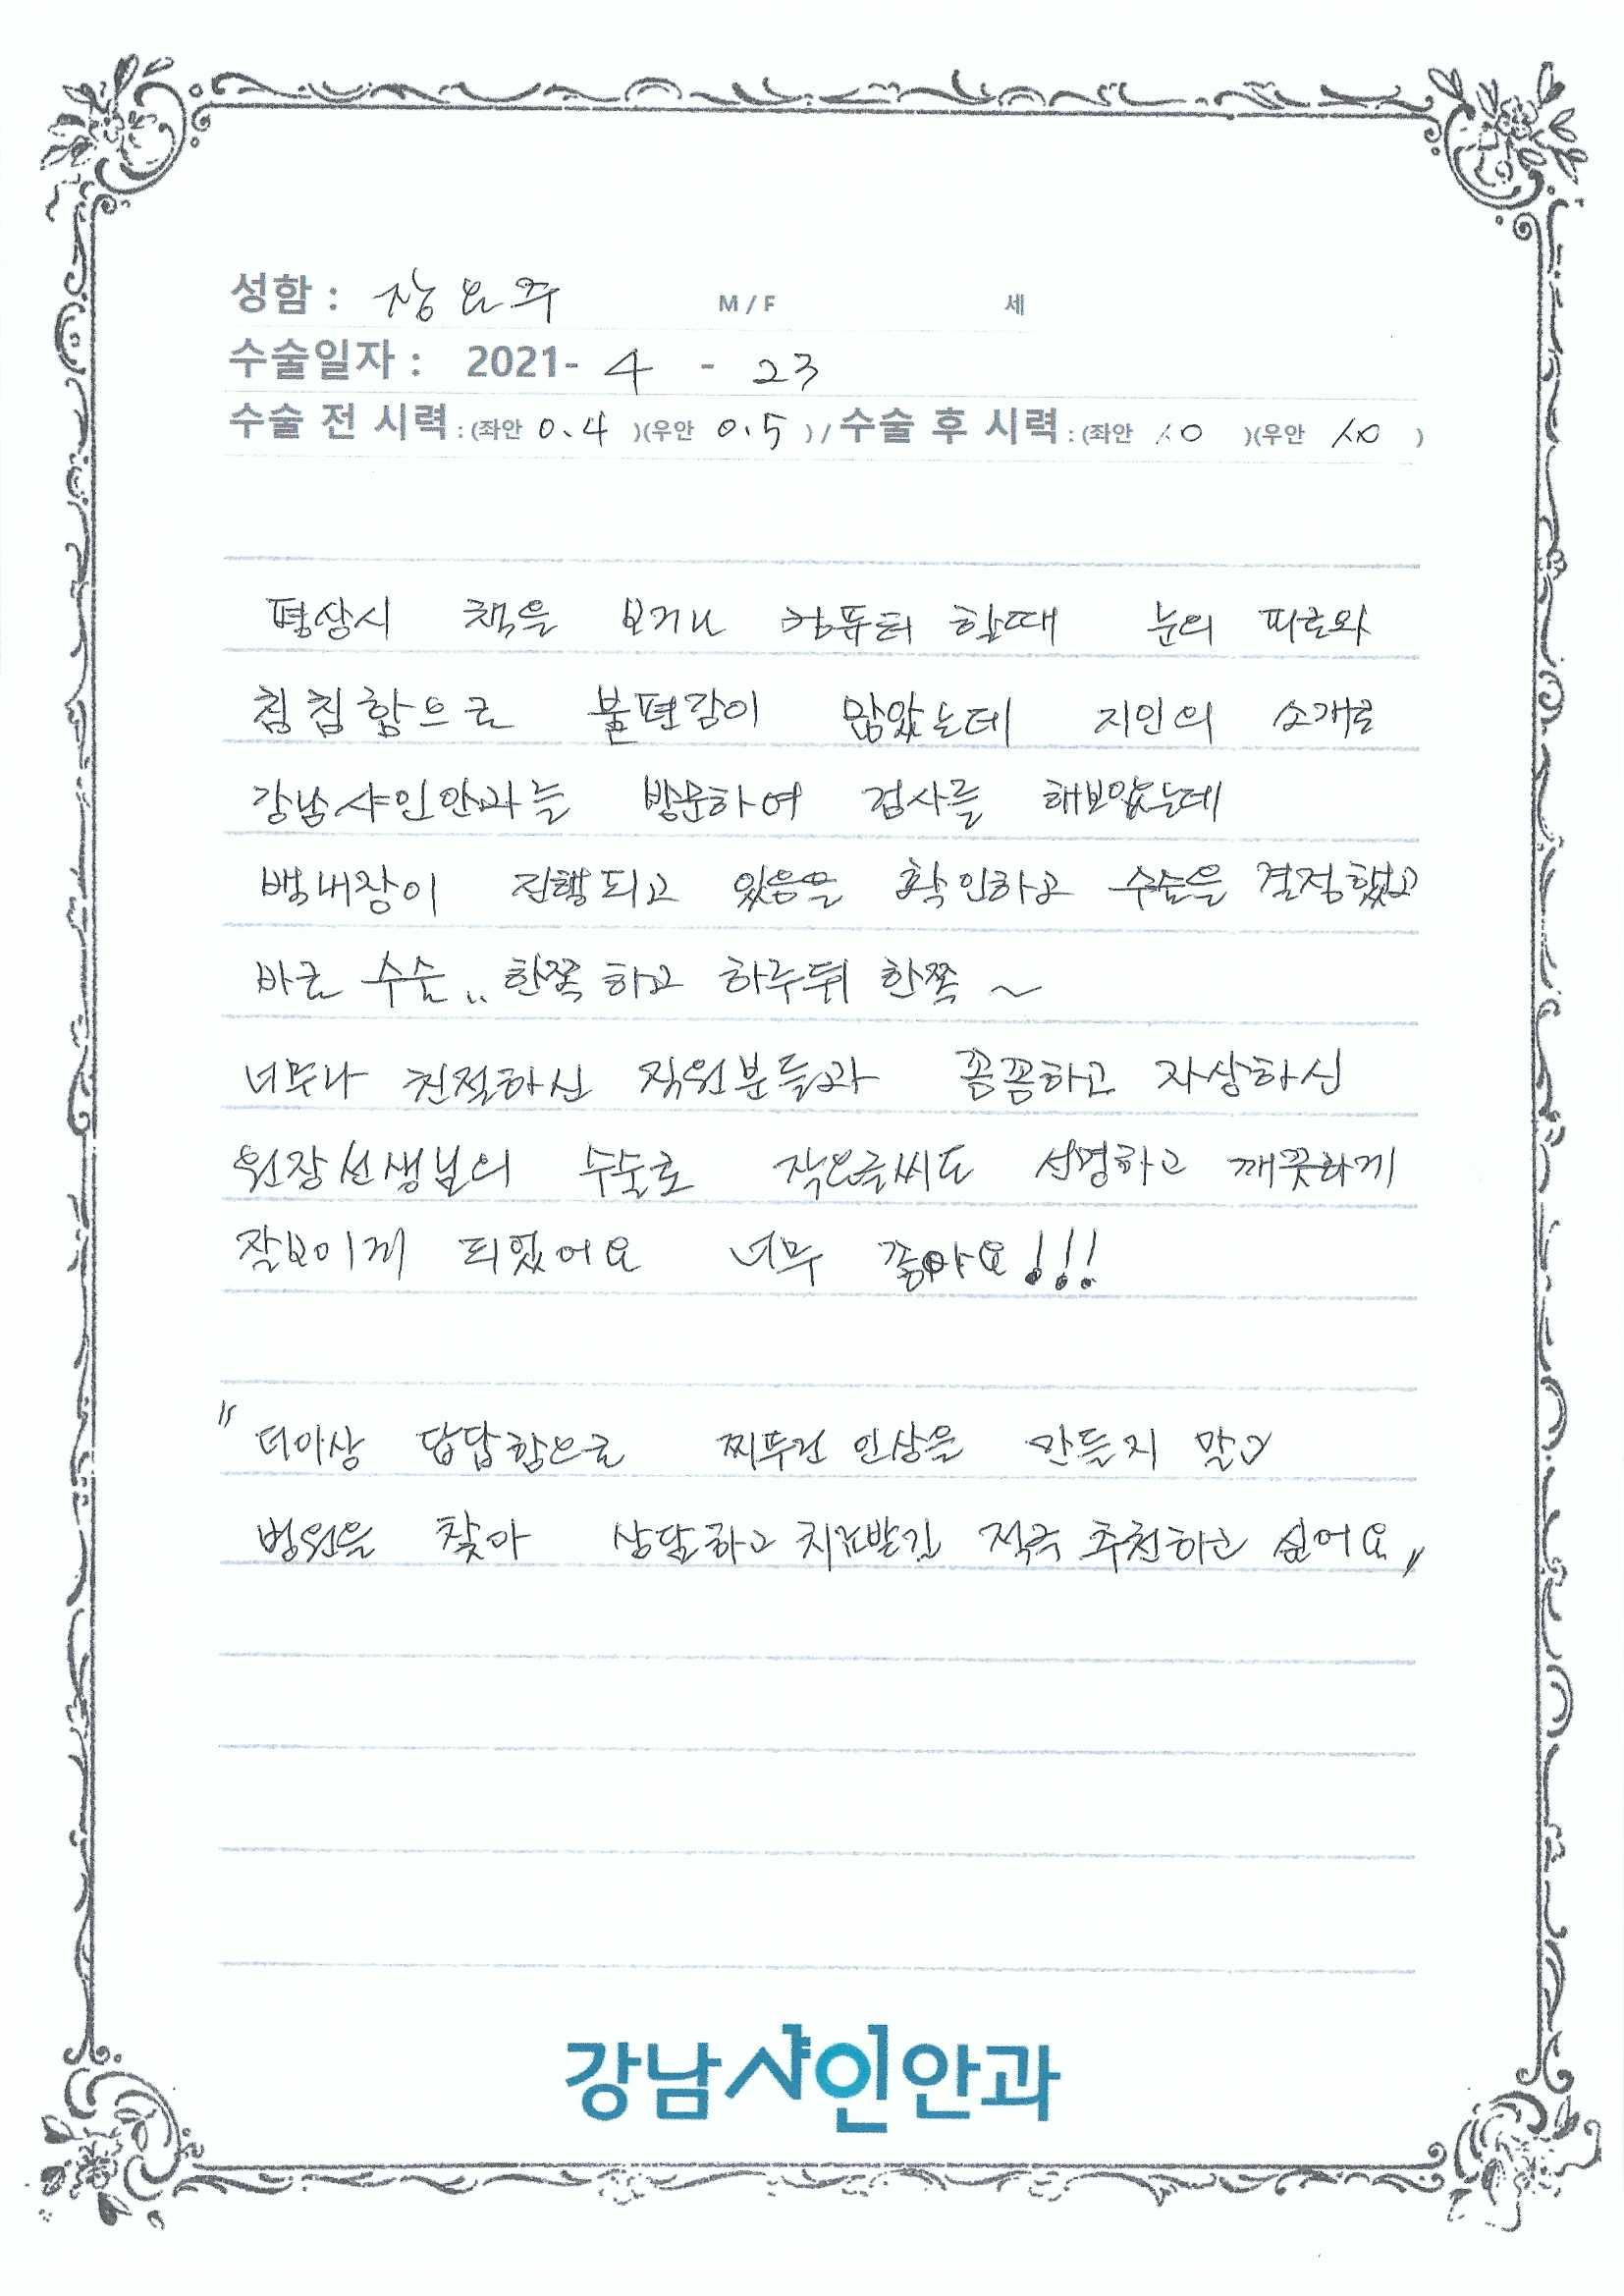 성함 : 장요주 M / F 세
수술일자 : 2021- 4 - 23
수술 전 시력 : (좌안 0.4 )(우안 0.5 ) / 수술 후 시력 : (좌안 1.0 )(우안 1.0 )
평상시 책을 보거나 컴퓨터 할때 눈의 피로와
침침함으로 불편감이 많았는데 지인의 소개로
강남샤인안과를 방문하여 검사를 해보았는데
백내장이 진행되고 있음을 확인하고 수술을 결정했고
바로 수술.. 한쪽 하고 하루뒤 한쪽 ~
너무나 친절하신 직원분들과 꼼꼼하고 자상하신
원장선생님의 수술로 작은글씨도 선명하고 깨끗하게
잘보이게 되었어요 너무 좋아요!!!
"더이상 답답함으로 찌푸린 인상을 만들지 말고
병원을 찾아 상담하고 치료받길 적극 추천하고 싶어요"
강남샤인안과